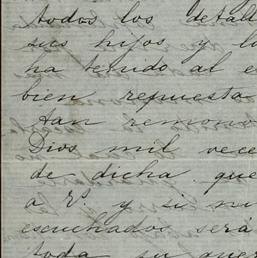 todos los detall
sus hijos y l
ha tenido al e
bien repuesta
tan remono
Dios mil vece
de dicha que
a V. y si m
escuchados será
toda su quer